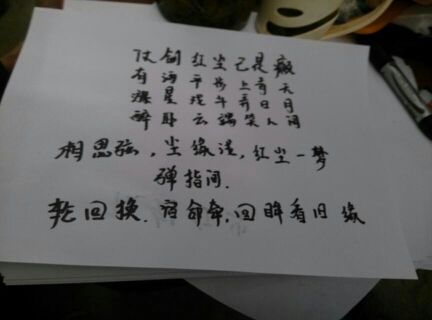 仗剑红尘已是癫
有酒平步上青天
游星戏斗弄日月
醉卧云端笑人间
相思弦，尘缘浅，红尘一梦
弹指间.
轮回换.宿命牵,回眸看旧缘